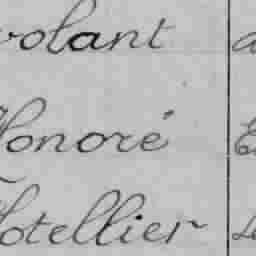 volant
Honoré
Hotellier